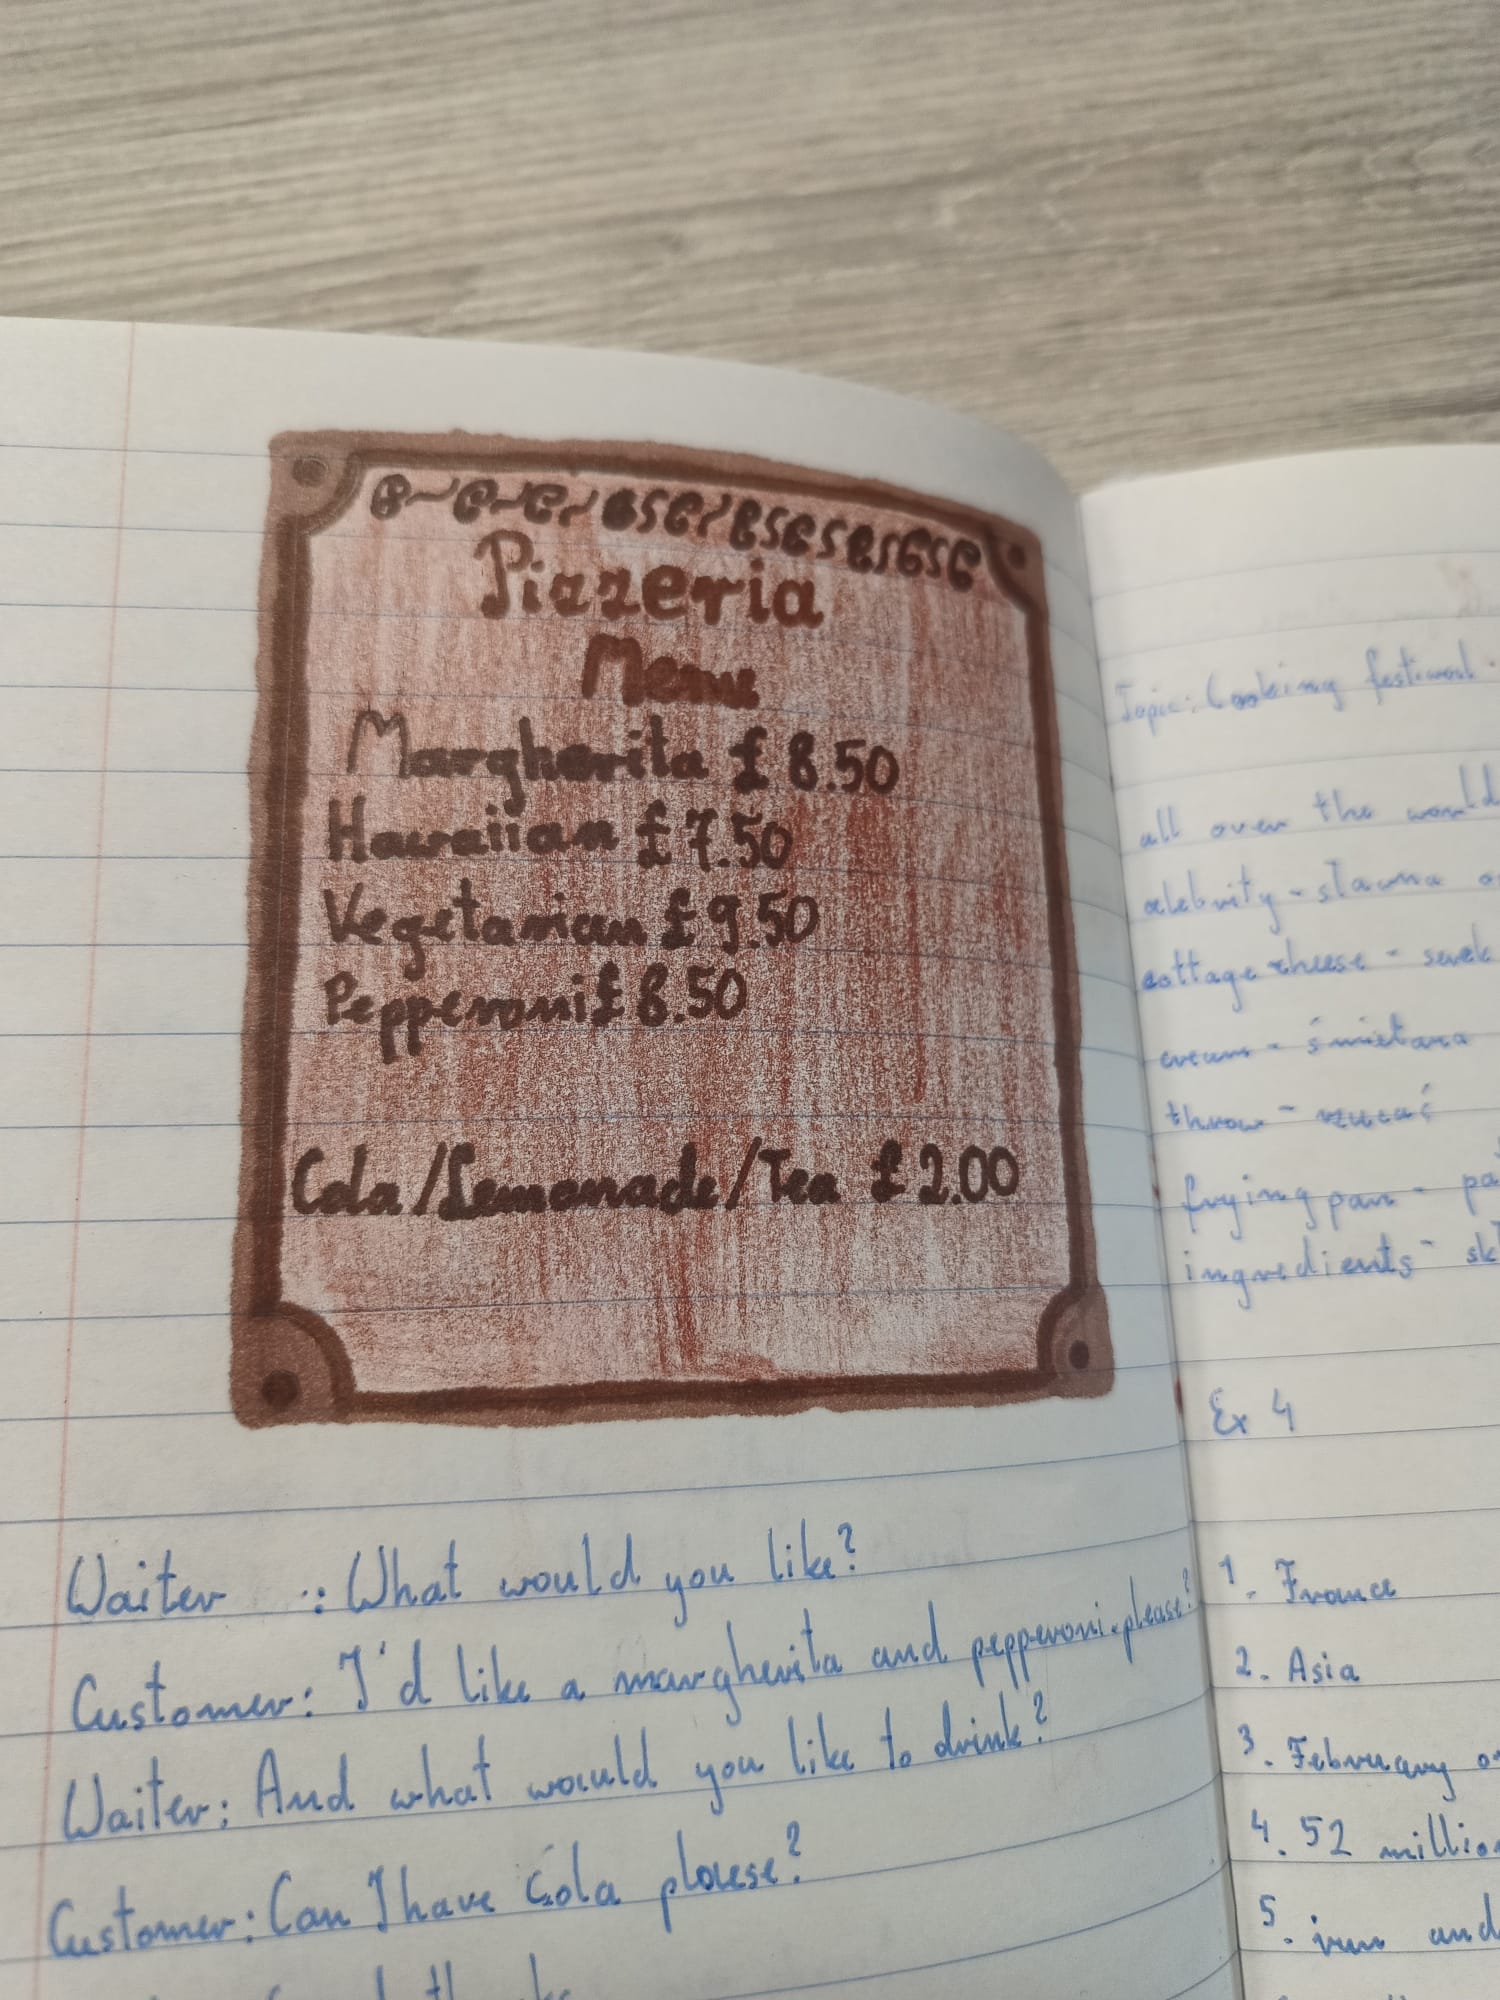 Pizzeria
Menu
Margherita £ 8.50
Hawaiian £ 7.50
Vegetarian £ 9.50
Pepperoni £ 8.50
Cola/Lemonade/Tea £ 2.00
Waiter : What would you like?
Customer: I'd like a margherita and pepperoni. please?
Waiter: And what would you like to drink?
Customer: Can I have Cola please?
Topic: Cooking festival.
all over the world
celebrity - sława
cottage cheese -
cream - śmietana
throw - rzucać
frying pan -
ingredients -
Ex 4
1. France
2. Asia
3. February
4. 52 million
5. run and